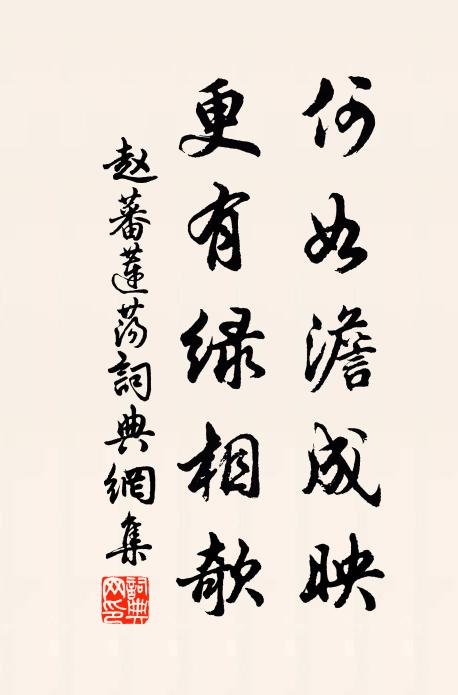 何如澹成映
更有绿相欹
赵蕃蓮荡詞典網集
詞典网印